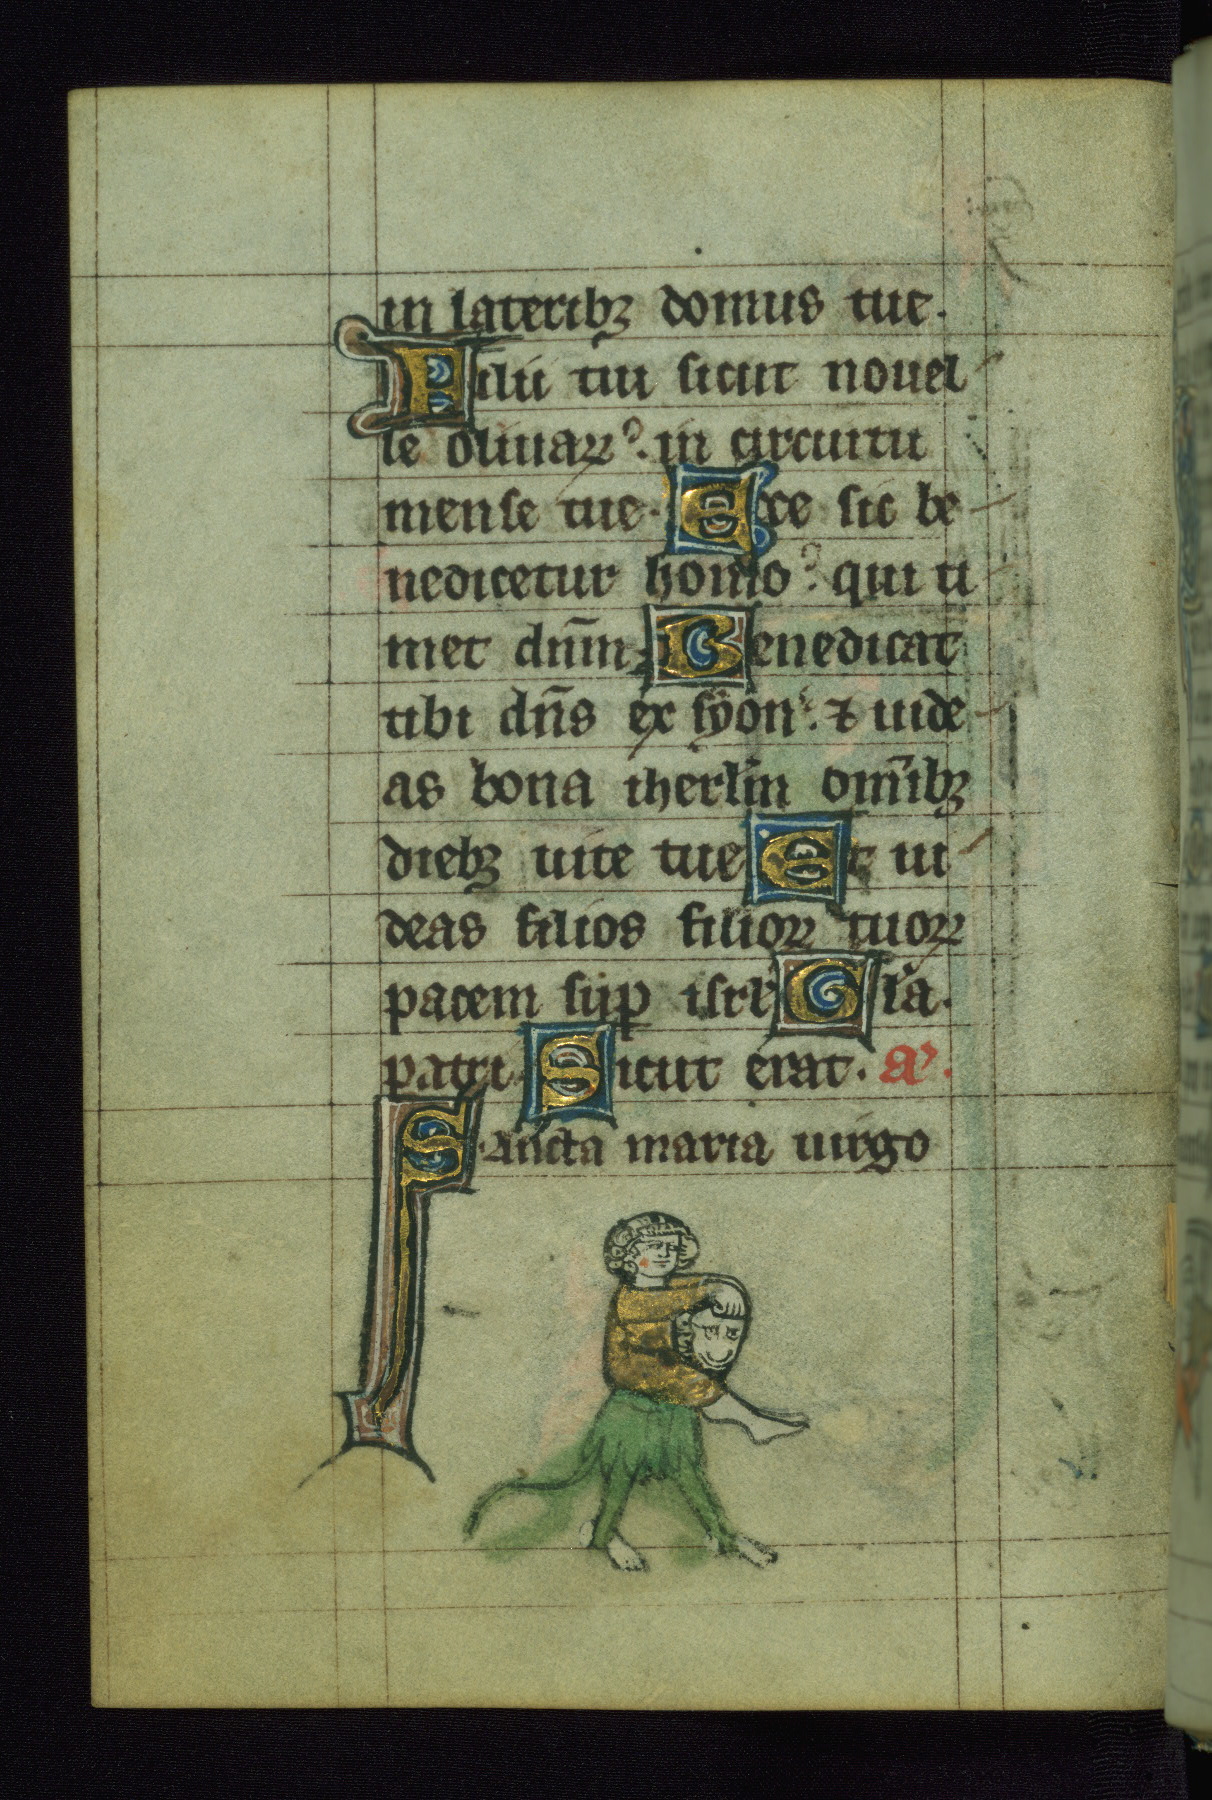 in lateribꝫ domus tue.
Filii tui sicut nouel
le oliuaꝝ. in circuitu
mense tue. Ecce sic be
nedicetur homo. qui ti
met dn̄m. Benedicat
tibi dn̄s ex syon. ⁊ uide
as bona iherl̄m om̄ibꝫ
diebꝫ uite tue Et ui
deas filios filioꝝ tuoꝝ
pacem suꝑ isrl̄ Gl̄a.
patri. Sicut erat. a᷒.
Sancta maria uirgo